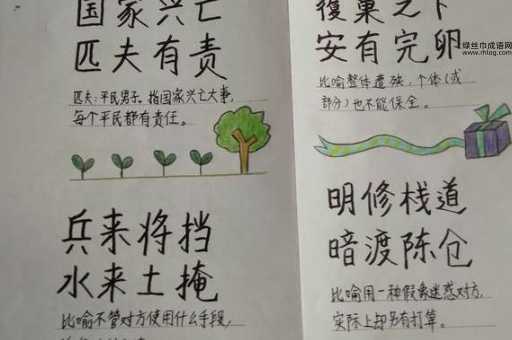 国家兴亡
匹夫有责
匹夫:平民男子。指国家兴亡大事,
每个平民都有责任。
兵来将挡
水来土掩
比喻不管对方使用什么手段,
覆巢之下
安有完卵
比喻整体遭殃,个体(或
部分)也不能保全。
明修栈道
暗渡陈仓
比喻用一种假象迷惑对方,
实际上却另有打算。
绿丝巾成语网
www.rhlog.com